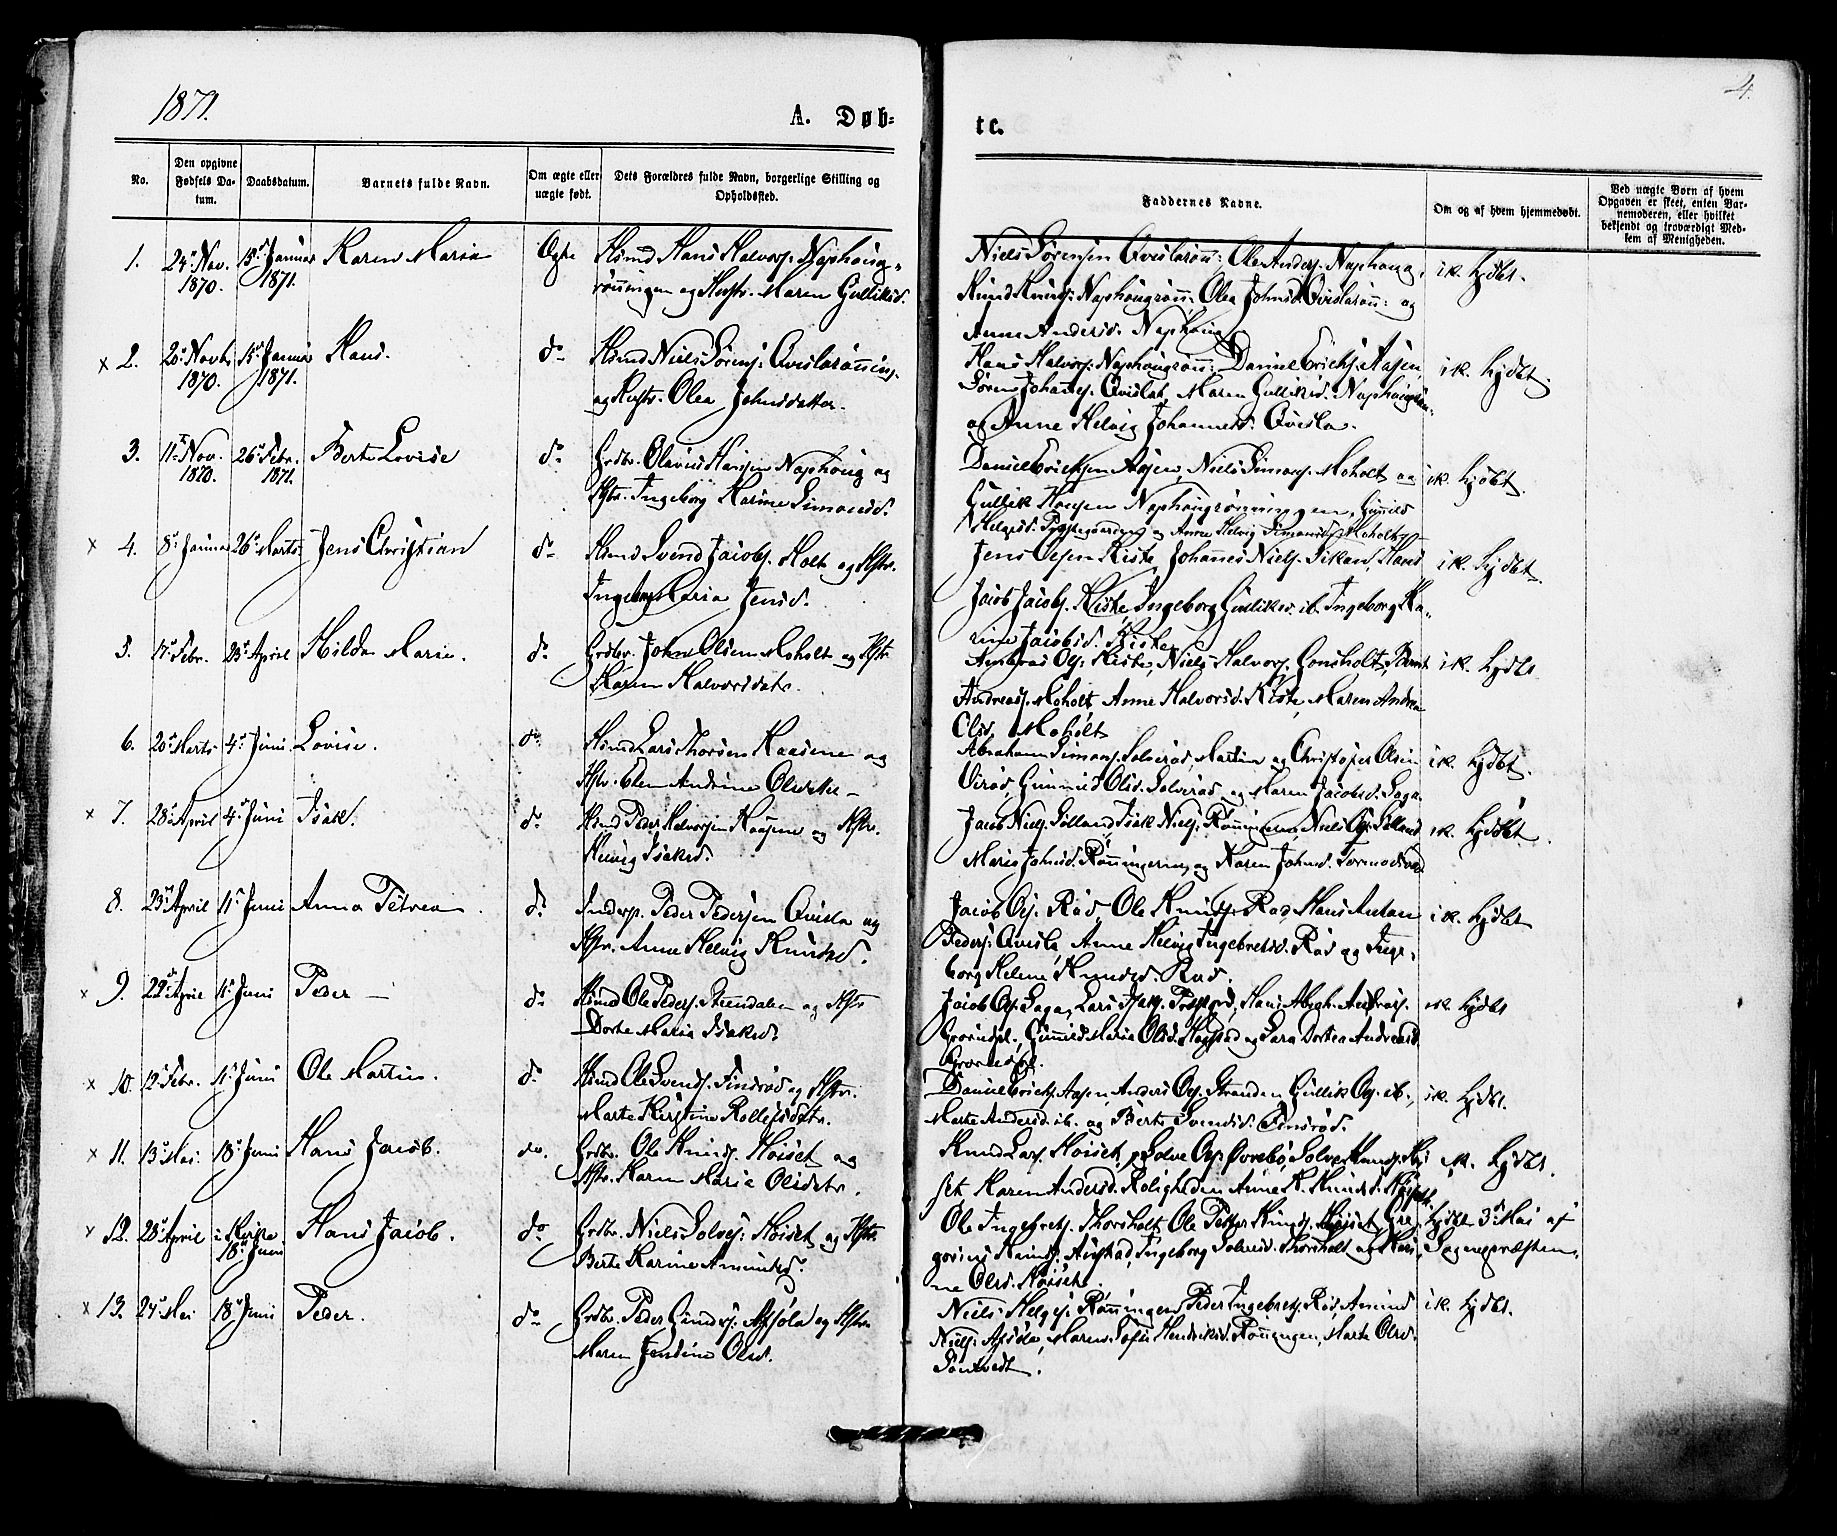 1871.
A. Døb=
te.
4.
No.
Den opgivne Fødsels Datum.
Daabsdatum.
Barnets fulde Navn.
Om ægte eller uægte født.
Dets Forældres fulde Navn, borgerlige Stilling og Opholdssted.
Faddernes Navne.
Om og af hvem hjemmedøbt.
Ved uægte Børn af hvem Opgaven er skeet, enten Barnemoderen, eller hvilket bekjendt og troværdigt Medlem af Menigheden.
1. 24de Nov. 1870. 15de Januar 1871. Karen Maria Ægte Hsmd Hans Halvors. Naphoug-
rönningen og Hustr. Maren Gulliksd.
Niels Sörensen Qvislarönn:, Ole Anders. Naphoug,
Knud Knuds. Naphougrönn: Olea Johnsd. Qvislarönn: og
Anne Andersd. Naphoug
ik. hjdbt.
x 2. 20de Novbr 1870. 15de Januar 1871. Hans. do Hsmd Niels Sörens. Qvislarönning.
og Hustr. Olea Johnsdatter.
Hans Halvors. Naphougrönn: Daniel Erichs. Aasen,
Sören Johannes. Qvisla, Maren Gulliksd. Naphougrön:
og Anne Helvig Johannesd. Qvisla.
ik. hjdbt.
3. 11te Nov. 1870. 26de Febr. 1871. Berte Lovise do Grdbr. Olavus Hansen Naphoug og
Hstr. Ingeborg Karine Simonsd.
Daniel Ericksen Aasen, Niels Simons. Moholt og
Gullik Hansen Naphougrönningen, Gunild
Helgesd. Præstegaarden og Anne Helvig Simonsd. Moholt
ik. hjdbt.
x 4. 8de Januar 26de Marts Jens Christian do Hsmd Svend Jacobs. Holt og Hstr.
Ingeborg Maria Jensd.
Jens Olsen Kiste, Johannes Niels. Sikan, Hans
Jacob Jacobs. Kiste, Ingeborg Gulliksd. ib. Ingeborg Ka-
rine Jacobsd. Kiste
ik. hjdbt.
5. 17de Febr. 23de April Hilda Marie. do Grdbr. John Olsen Moholt og Hstr.
Karen Halvorsdatr.
Andreas Ols. Kiste, Niels Halvors. Gonsholt,
Andreas. Moholt, Anne Halvorsd. Kiste, Maren Andrea
Olsd. Moholt
ik. hjdbt.
6. 20de Marts 4de Juni Lovise. do Hsmd Lars Thorsen Kaasene og
Hstr. Elen Andrine Olsdatter
Abraham Simons. Solveröd, Martin og Christofer Olsen
Viröd, Gunnild Olsd. Solveröd og Maren Jacobsd. Saga.
ik. hjdbt.
x 7. 28de April 4de Juni Isak. do Hsmd Peder Halvorsen Kaasene og Hstr.
Helvig Isaksd.
Jacob Niels. Solland, Isak Niels. Rönningen, Niels Ols. Solland
Maria Johnsd. Rönningen og Karen Johnsd. Tormodsröd
ik. hjdbt.
8. 23de April 11te Juni Anna Petrea do Inderst. Peder Pedersen Qvisla og
Hstr. Anne Helvig Knudsd.
Jacob Ols. Röd, Ole Knuds. Röd, Hans Anton
Peders. Qvisla, Anne Helvig Ingebretsd. Röd og Inge-
borg Helene Knudsd. Röd.
ik. hjdbt
x 9. 29de April 11te Juni Peder do Hsmd Ole Peders. Steindalen og Hstr
Dorte Maria Isaksd.
Jacob Ols. Saga, Lars Isaks. Hans Abrah. Andreas.
Gunild Maria Olsd. Haugstad og Sara Dortea Andreasd.
ik. hjdbt
x 10. 12te Febr. 11te Juni Ole Martin. do Hsmd Ole Svends. Findröd og Hstr.
Marte Kirstine Rollefsdatr.
Daniel Erichs. Aasen, Anders Ols. Stranden, Gullik Ols. ib.,
Marte Andersd. ib. og Berte Svendsd. Findsröd.
ik. hjdbt.
x 11. 13de Mai. 18de Juni Hans Jacob. do Grdbr. Ole Knuds. Höiset og
Hstr. Karen Marie Olsdatr.
Knud Lars. Höiset, Solve Ols. Övrebö, Solve Hans. Höi-
set Karen Andersd. Roligheden Anne K. Knudsd. Höiset
ik. hjdbt.
x 12. 28de April i Kirke 18de Juni Hans Jacob. do Grdbr. Niels Solves. Höiset og Hstr.
Berte Karine Amundsd.
Ole Ingebrets. Thorsholt, Ole Petter Knuds. Höiset, Gre-
gorius Knuds. Austad, Ingeborg Solvesd. Thorsholt og Kari-
ne Olsd. Höiset.
hjdbt 3de Mai af
Sognepræsten.
x 13. 24de Mai 18de Juni Peder. do Grdbr. Peder Gunders. Assjöla og Hstr.
Maren Jensine Olsd.
Niels Helges. Rönningen, Peder Ingebrets. Röd, Amund
Niels. Assjöla, Maren Sofie Hendriksd. Rönningen, Marte Olsd.
Söntvedt.
ik. hjdbt.